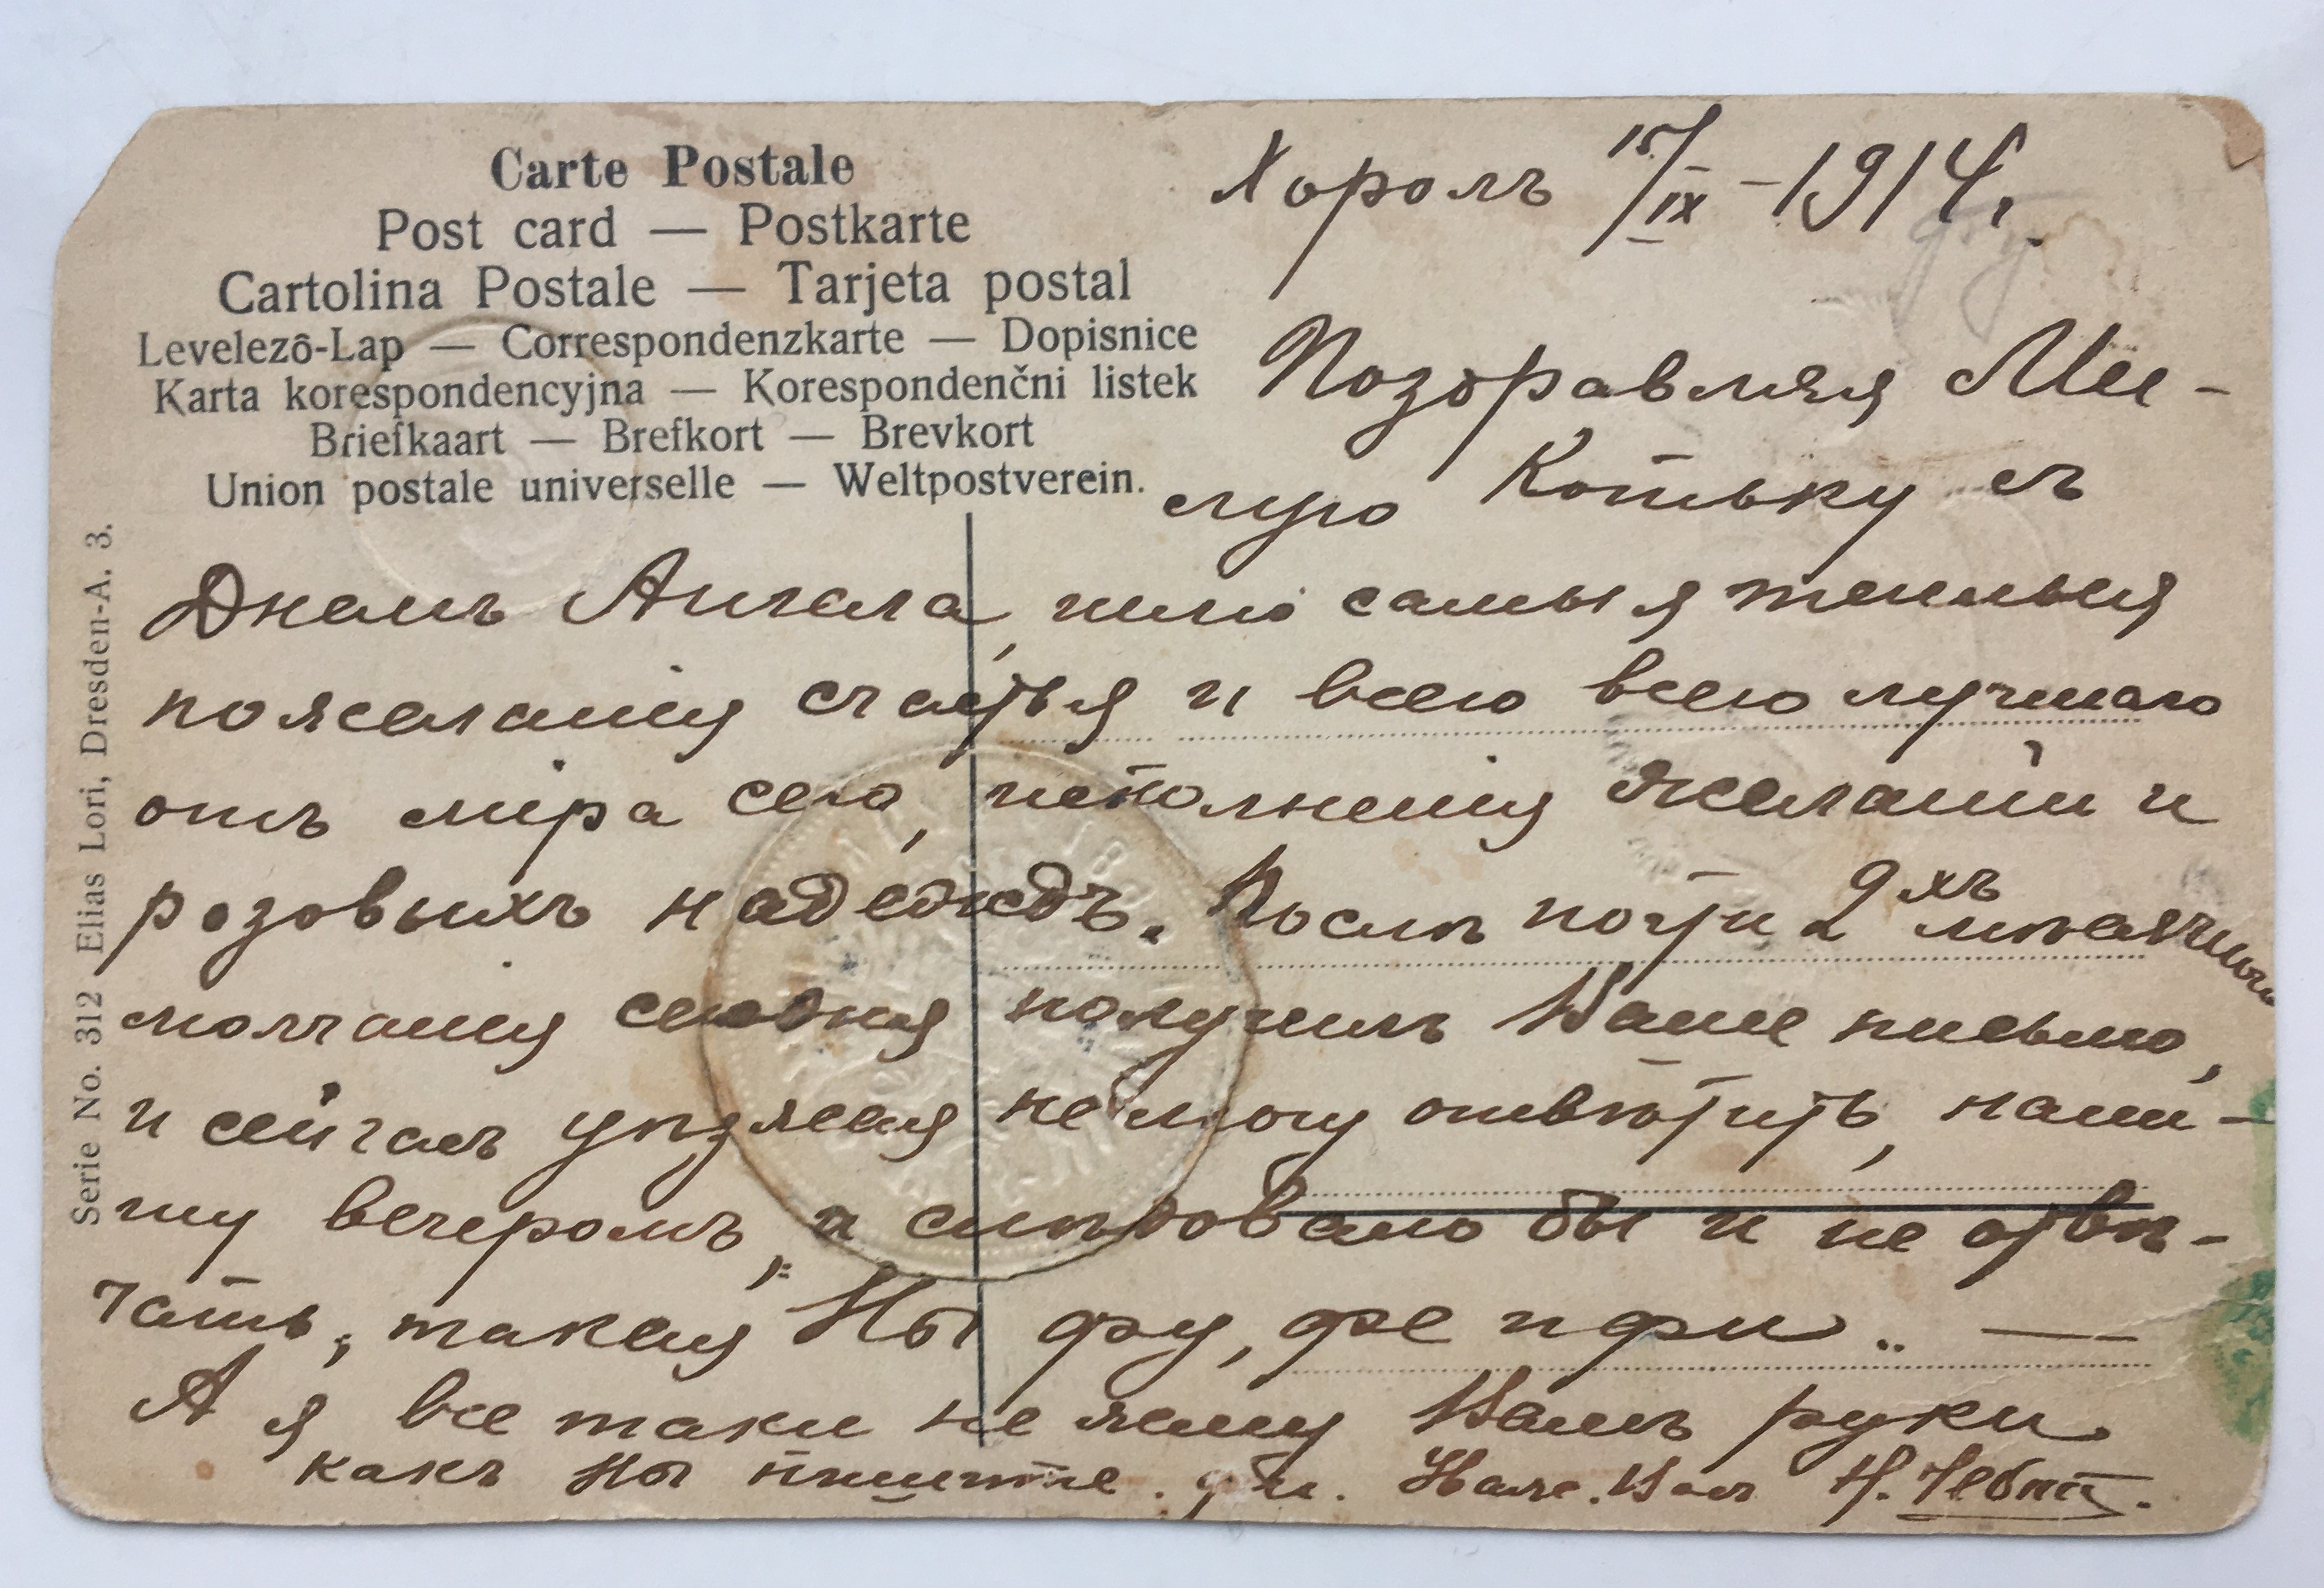 Carte Postale
Post card — Postkarte
Cartolina Postale — Tarjeta postal
Levelezô-Lap — Correspondenzkarte — Dopisnice
Karta korespondencyjna — Korespondenčni listek
Briefkaart — Brefkort — Brevkort
Union postale universelle — Weltpostverein.
Serie No. 312 Elias Lori, Dresden-A. 3.
Хороль 15/IX - 1914 г.
Поздравляя Ми-
лую Котьку съ
Днемъ Ангела, шлю самыя теплыя
пожеланія счастья и всего всего лучшаго
отъ міра сего, исполненія желаній и
розовыхъ надеждъ. Послѣ почти 2хъ мѣсячнаго
молчанія сегодня получилъ Ваше письмо,
и сейчасъ уѣзжая не могу отвѣтить, напи-
шу вечеромъ, а слѣдовало бы и не отвѣ-
чать, такая Вы фу, фе и фи.. —
А я все таки не жму Вамъ руки
какъ Вы пишите. фи. Ваш Н.